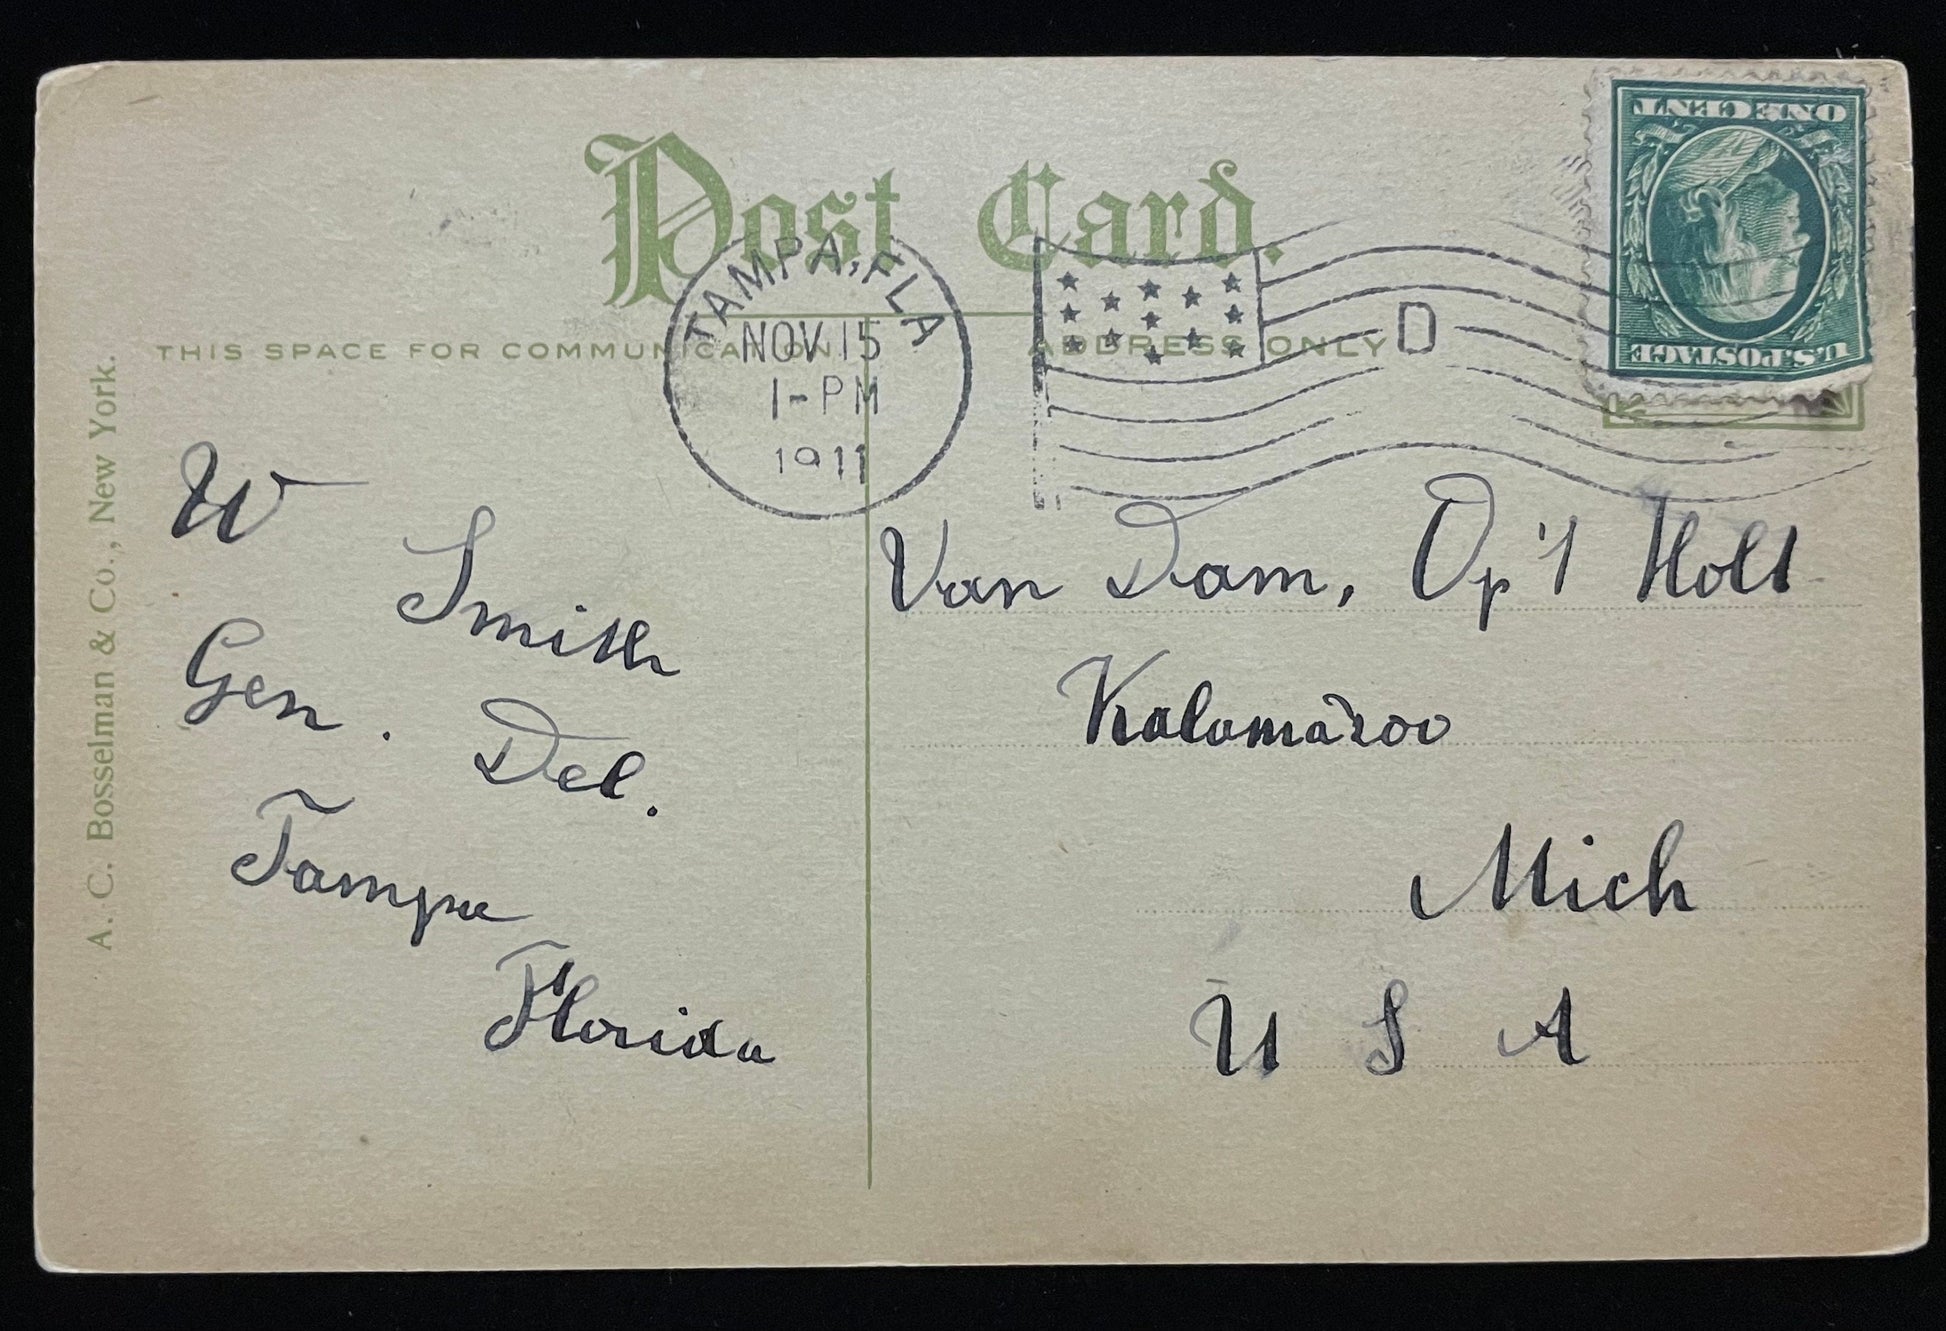 Post Card.
ONE CENT
U.S. POSTAGE
TAMPA, FLA
NOV 15
1-PM
1911
D
THIS SPACE FOR COMMUNICATION.
ADDRESS ONLY
A. C. Bosselman & Co., New York.
W
Smith
Gen. Del.
Tampa
Florida
Van Dam, Op't Holt
Kalamazoo
Mich
U S A